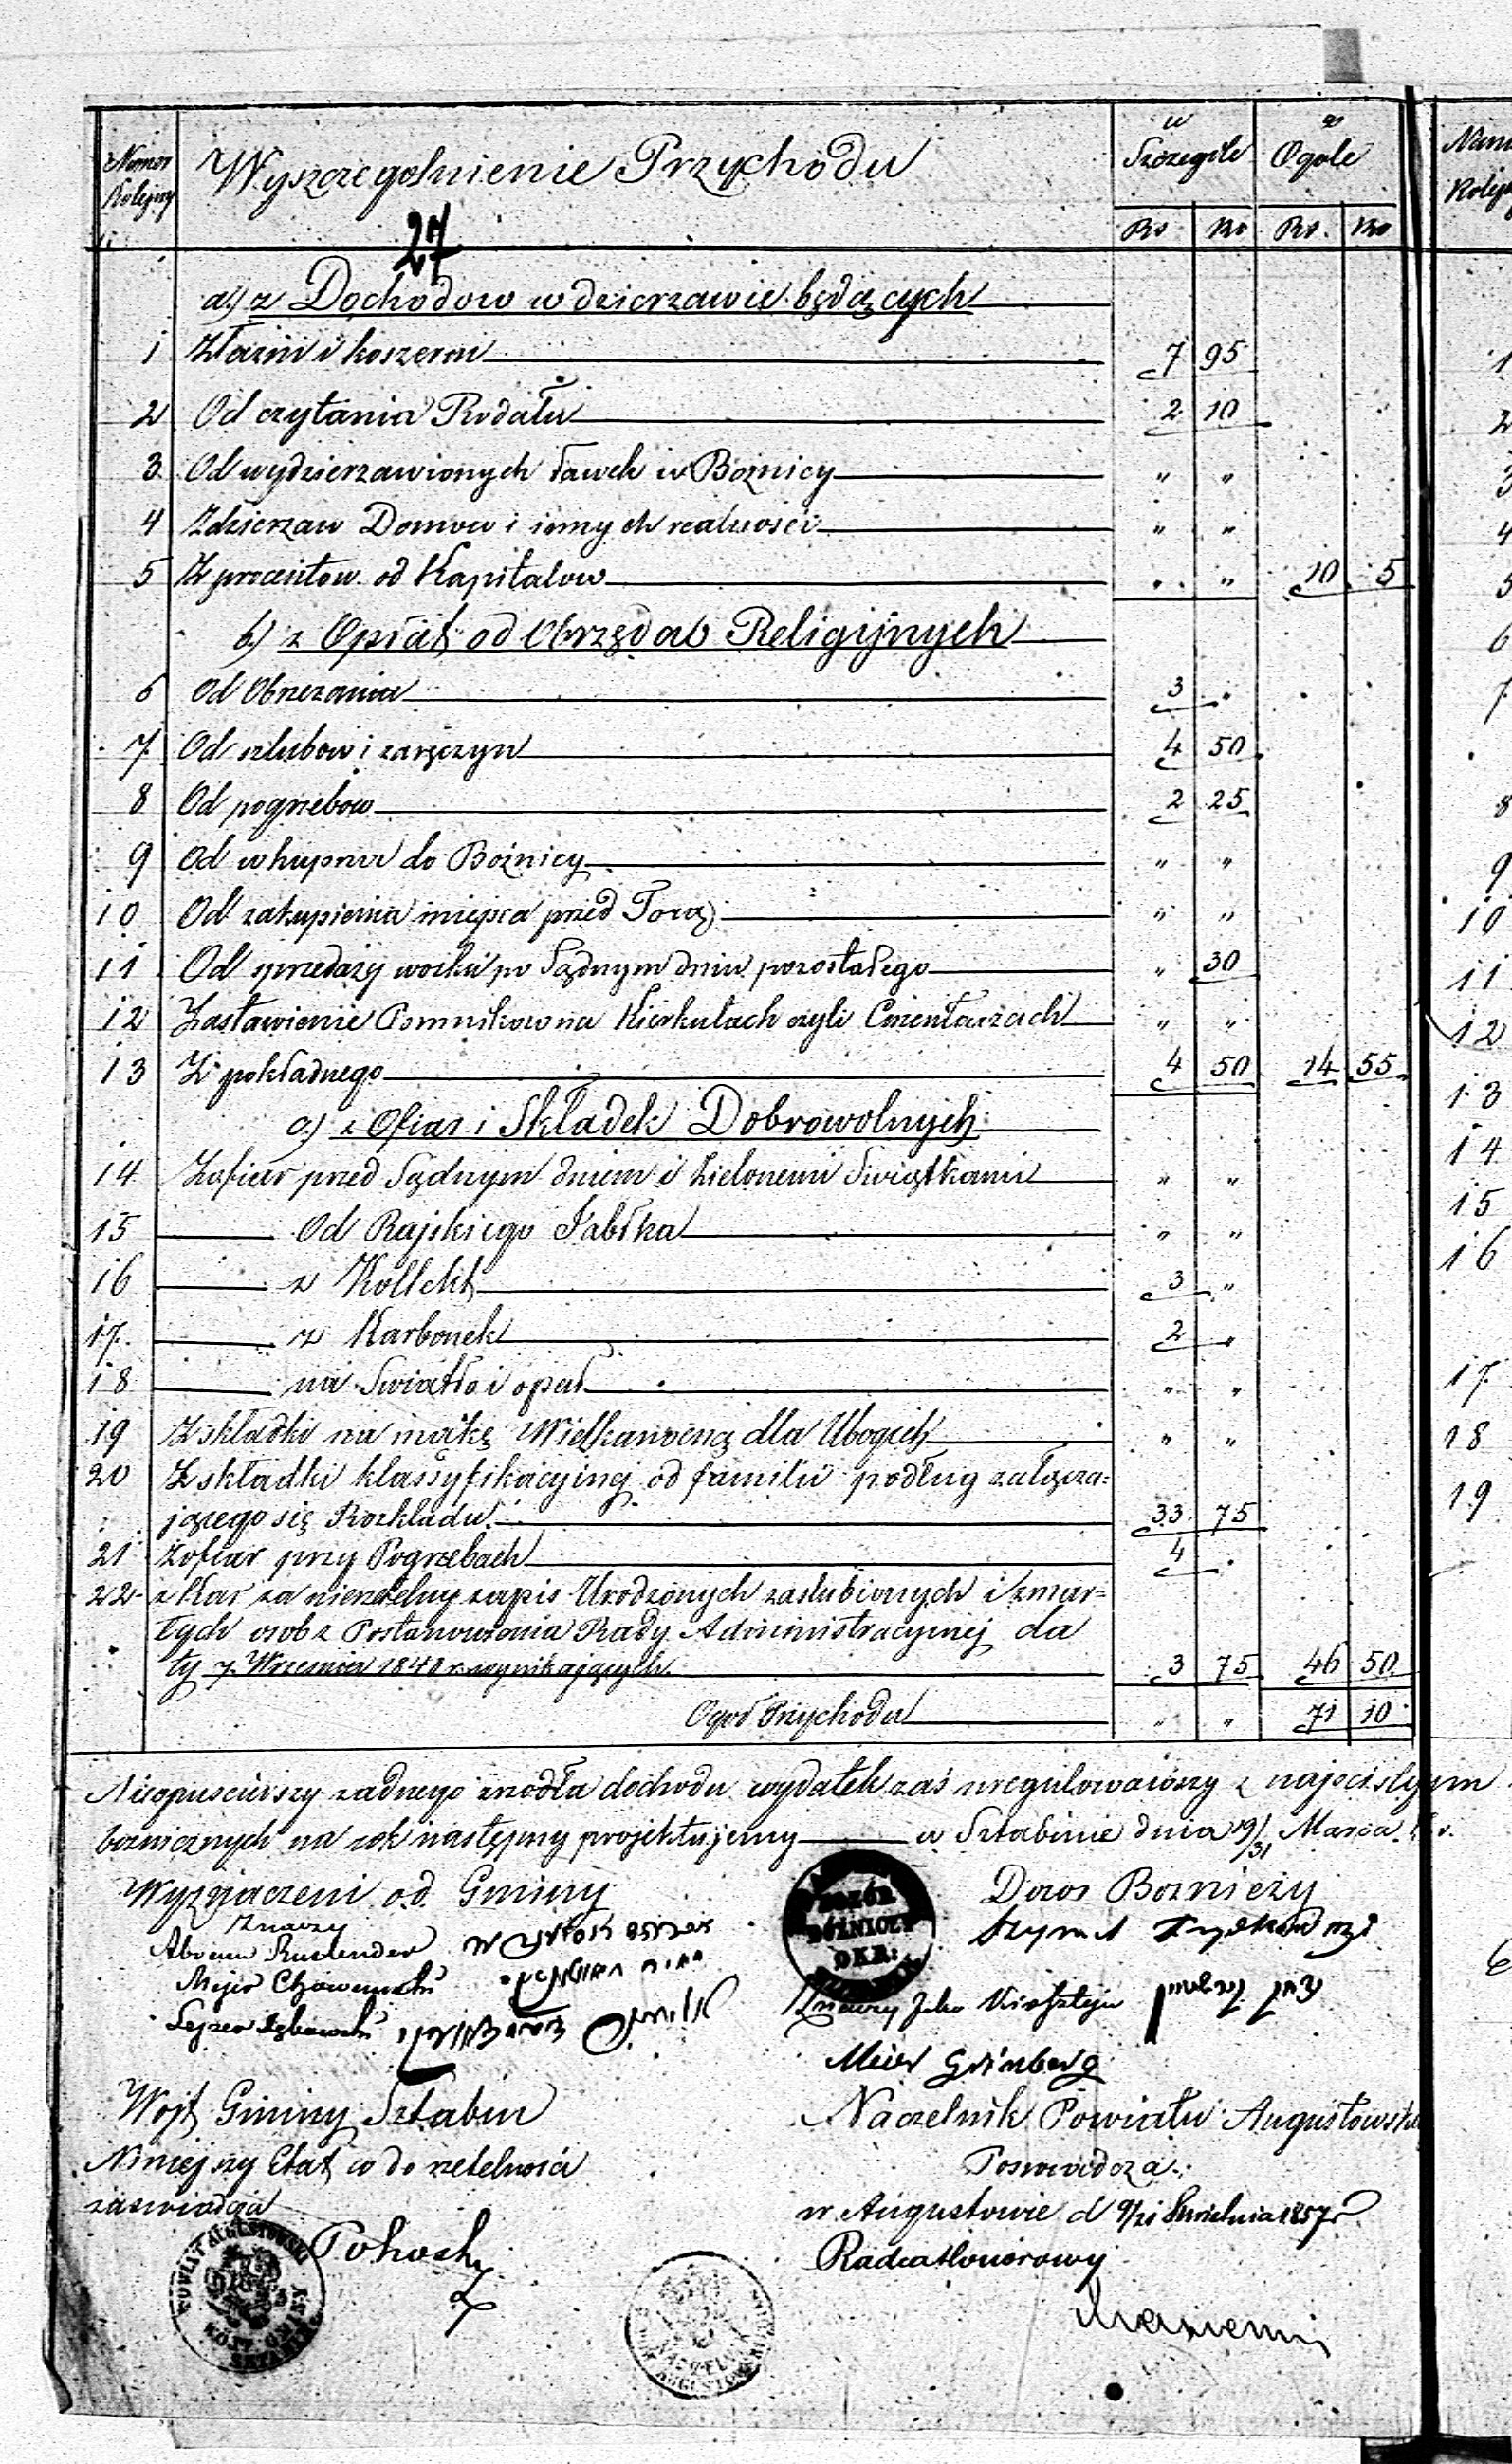 Numer Kolejny
Wyszczegolnienie Przychodu
w Szczegule
w Ogole
Rs Ko Rs. Ko
27
a) z Dochodow w dzierzawie będących
1 Z łazni i koszeron 7 95
2 Od czytania Rodału 2 10
3 Od wydzierzawionych ławek w Boznicy " "
4 Z dzierzaw Domow i innych realnosci " "
5 Z procentow od Kapitałow " " 10 5
b) z Opłat od Obrzędow Religijnych
6 Od Obrzezania 3 "
7 Od szlubow i zaręczyn 4 50
8 Od pogrzebow 2 25
9 Od wkupna do Bożnicy " "
10 Od zakupienia miejsca przed Torą " "
11 Od sprzedaży wosku po Sądnym dniu pozostałego " 30
12 Za stawienie Pomnikow na Kierkutach czyli Cmentarzach " "
13 Z pokładnego 4 50 14 55
c) z Ofiar i Składek Dobrowolnych
14 Z ofiar przed Sądnym dniem i Zielonemi Swiątkami " "
15 Od Rajskiego Jabłka " "
16 z Kollekt 3 "
17 z Karbonek 2 "
18 na Swiatło i opał " "
19 Z składki na mąkę Wielkanocną dla Ubogich " "
20 Z składki klassyfikacyjnej od familii podług załącza-
jącego się Rozkładu 33 75
21 Z ofiar przy Pogrzebach 4 "
22 z Kar za nierzetelny zapis Urodzonych zaslubionych i zmar-
łych osob z Postanowienia Rady Administracyjnej da
ty 7 Wrzesnia 1840 r. wynikających 3 75 46 50
Ogoł Przychodu " " 71 10
Nieopusciwszy zadnego zrodła dochodu wydatek zaś uregulowawszy z najscislejszym
boznicznych na rok następny projektujemy w Sztabinie dnia 19/31 Marca
Wyznaczeni od Gminy
Dozor Bozniczy
Znaczy
Abram
Mejer
Lejzer
Znaczy
DOZÓR BÓŻNICZY OKR:
Meier Grinberg
Wojt Gminy Sztabin
Niniejszy Etat co do rzetelnosci
zaswiadcza
Naczelnik Powiatu Augustowski
Poswiadcza
w Augustowie d 9/21 Kwietnia 1857 r
Radca Honorowy
POWIAT AUGUSTOWSKI WÓJT GMINY SZTABIN